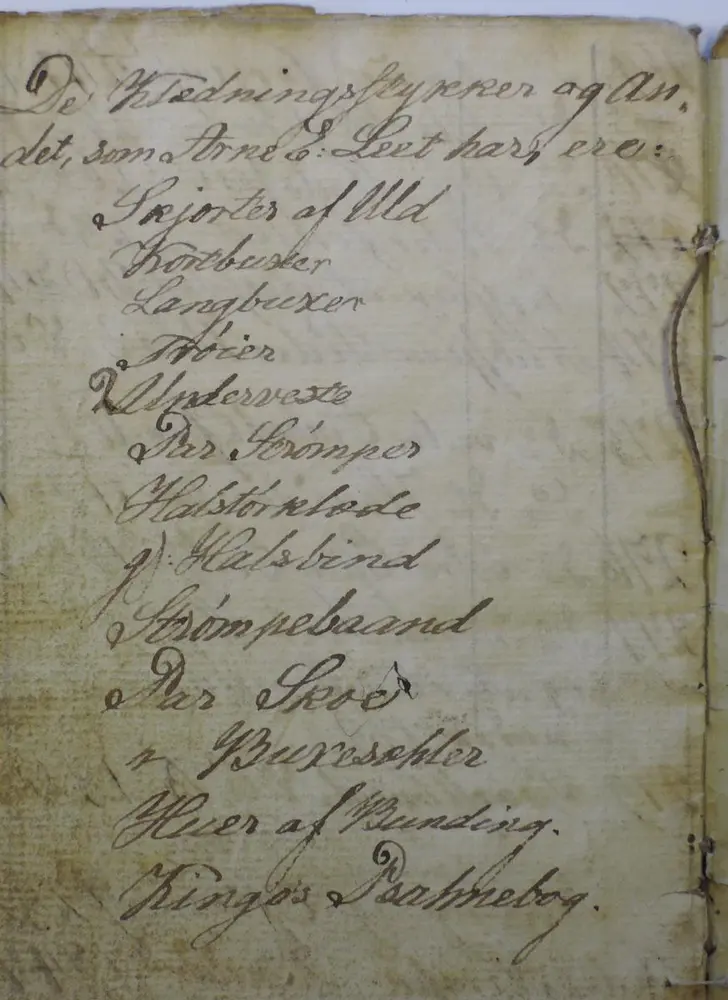 De Klædningsstykker og An-
det, som Arne E: Leet har, ere:
Skjorter af Uld
Kortbuxer
Langbuxer
Trøier
2 Underveste
Par Strømper
Halstørklæde
g): Halsbind
Strømpebaand
Par Skoe
" Buxesehler
Huer af Bunding.
Kingos Psalmebog.